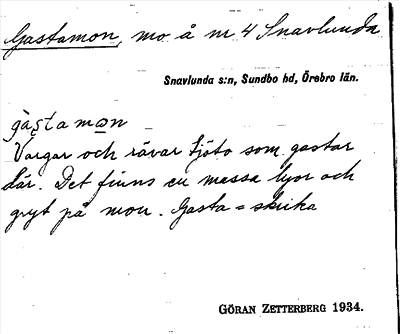 Gastamon, mo å nr 4 Snavlunda
Snavlunda s:n, Sundbo hd, Örebro län.
gàstamo̲n
Vargar och rävar tjöto som gastar
där. Det finns en massa lyor och
gryt på mon. Gasta = skrika
GÖRAN ZETTERBERG 1934.